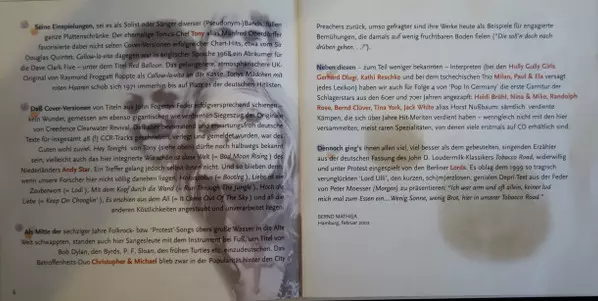 Seine Einspielungen, sei es als Solist oder Sänger diverser (Pseudonym-)Bands, füllen
ganze Plattenschränke. Der ehemalige Tonics-Chef Tony alias Manfred Oberdörffer
favorisierte dabei nicht selten Cover-Versionen erfolgreicher Chart-Hits, etwa vom Sir
Douglas Quintet. Callow-la-vita dagegen war in englischer Sprache 1968 ein Abräumer für
die Dave Clark Five – unter dem Titel Red Balloon. Das gelungenere, atmosphärischere UK-
Original von Raymond Froggatt floppte als Callow-lavita an der Kasse. Tonys Mädchen mit
roten Haaren schob sich 1971 immerhin auf Platz 41 der deutschen Hitlisten.
Daß Cover-Versionen von Titeln aus John Fogertys Feder erfolgversprechend schienen –
kein Wunder, gemessen am ebenso gigantischen wie verdienten Siegeszug der Originale
von Creedence Clearwater Revival. Daß dabei bestürzend und erwartungsfroh deutsche
Texte für insgesamt alf (!) CCR-Tracks geschrieben, verlegt und gemietet wurden, war des
Guten wohl zuviel. Hey Tonight von Tony (siehe oben) dürfte noch halbwegs bekannt
sein, vielleicht auch das hier integrierte Wie schön ist diese Welt (= Bad Moon Rising) des
Niederländers Andy Star. Ein Treffer gelang jedoch selbst ihm nicht. Und so blieben denn,
wenn unsere Forscher hier nicht völlig daneben liegen, Frohes Leben (= Bootleg), Liebe ist ein
Zauberwort (= Lodi), Mit dem Kopf durch die Wand (= Run Through The Jungle), Hoch die
Liebe (= Keep On Chooglin'), Es erschien aus dem All (= It Came Out Of The Sky) und all die
anderen Köstlichkeiten angestaubt und unverarbeitet liegen.
Als Mitte der sechziger Jahre Folkrock- bzw. 'Protest'-Songs übers große Wasser in die Alte
Welt schwappten, standen auch hier Sangesleute mit dem Instrument bei Fuß, um Titel von
Bob Dylan, den Byrds, P. F. Sloan, den frühen Turtles etc. einzudeutschen. Das
Betroffenheits-Duo Christopher & Michael blieb zwar in der Popularität hinter den City
6
Preachers zurück, umso gefragter sind ihre Werke heute als Beispiele für engagierte
Bemühungen, die damals auf wenig fruchtbaren Boden fielen ("Die soll'n doch nach
drüben gehen. . .!").
Neben diesen – zum Teil weniger bekannten – Interpreten (bei den Hully Gully Girls,
Gerhard Dlugi, Kathi Reschke und bei dem tschechischen Trio Milan, Paul & Ela versagt
jedes Lexikon) haben wir auch für Folge 2 von 'Pop In Germany' die erste Garnitur der
Schlagerstars aus den 60er und 70er Jahren angezapft. Heidi Brühl, Nina & Mike, Randolph
Rose, Bernd Clüver, Tina York, Jack White alias Horst Nußbaum: sämtlich verdiente
Kämpen, die sich über Jahre Hit-Meriten verdient haben – wenngleich nicht mit den hier
versammelten, meist raren Spezialitäten, von denen viele erstmals auf CD erhältlich sind.
Dennoch ging's ihnen allen viel, viel besser als dem gebeutelten, singenden Erzähler
aus der deutschen Fassung des John D. Loudermilk-Klassikers Tobacco Road, widerwillig
und unter Protest eingespielt von den Berliner Lords. Es oblag dem 1999 so tragisch
verunglückten 'Lord Ulli', den kurzen, sch(m)erzlosen, genialen Dapri-Text aus der Feder
von Peter Moesser (Morgen) zu präsentieren: "Ich war arm und oft allein, keiner lud
mich mal zum Essen ein... Wenig Sonne, wenig Brot, hier in unserer Tobacco Road."
BERND MATHEJA
Hamburg, Februar 2002